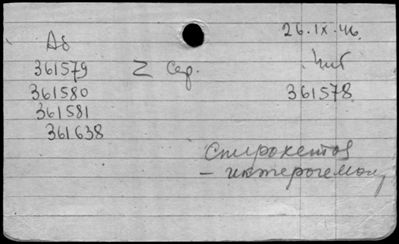 26.IX.46.
Аб
361579 2 сер.
361580 361578
361581
361638
Спирохетоз